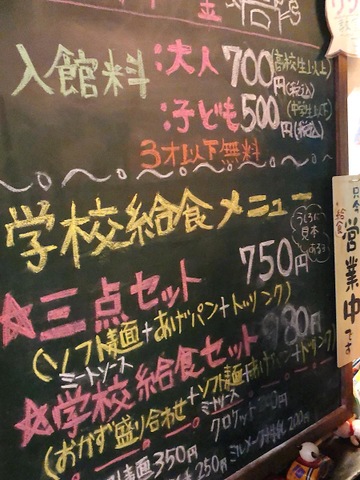 入館料:大人700円(高校生以上)(税込)
:子ども500円(中学生以下)(税込)
3才以下無料
学校給食メニュー
うしろに見本あるヨ
★三点セット 750円
(ソフト麺+あげパン+ドリンク)
ミートソース
★学校給食セット 980円
(おかず盛り合わせ+ソフト麺+あげパン+ドリンク)
ミートソース
麺350円
コロッケ
250円
ミルメーク
200円
給食
営業中です